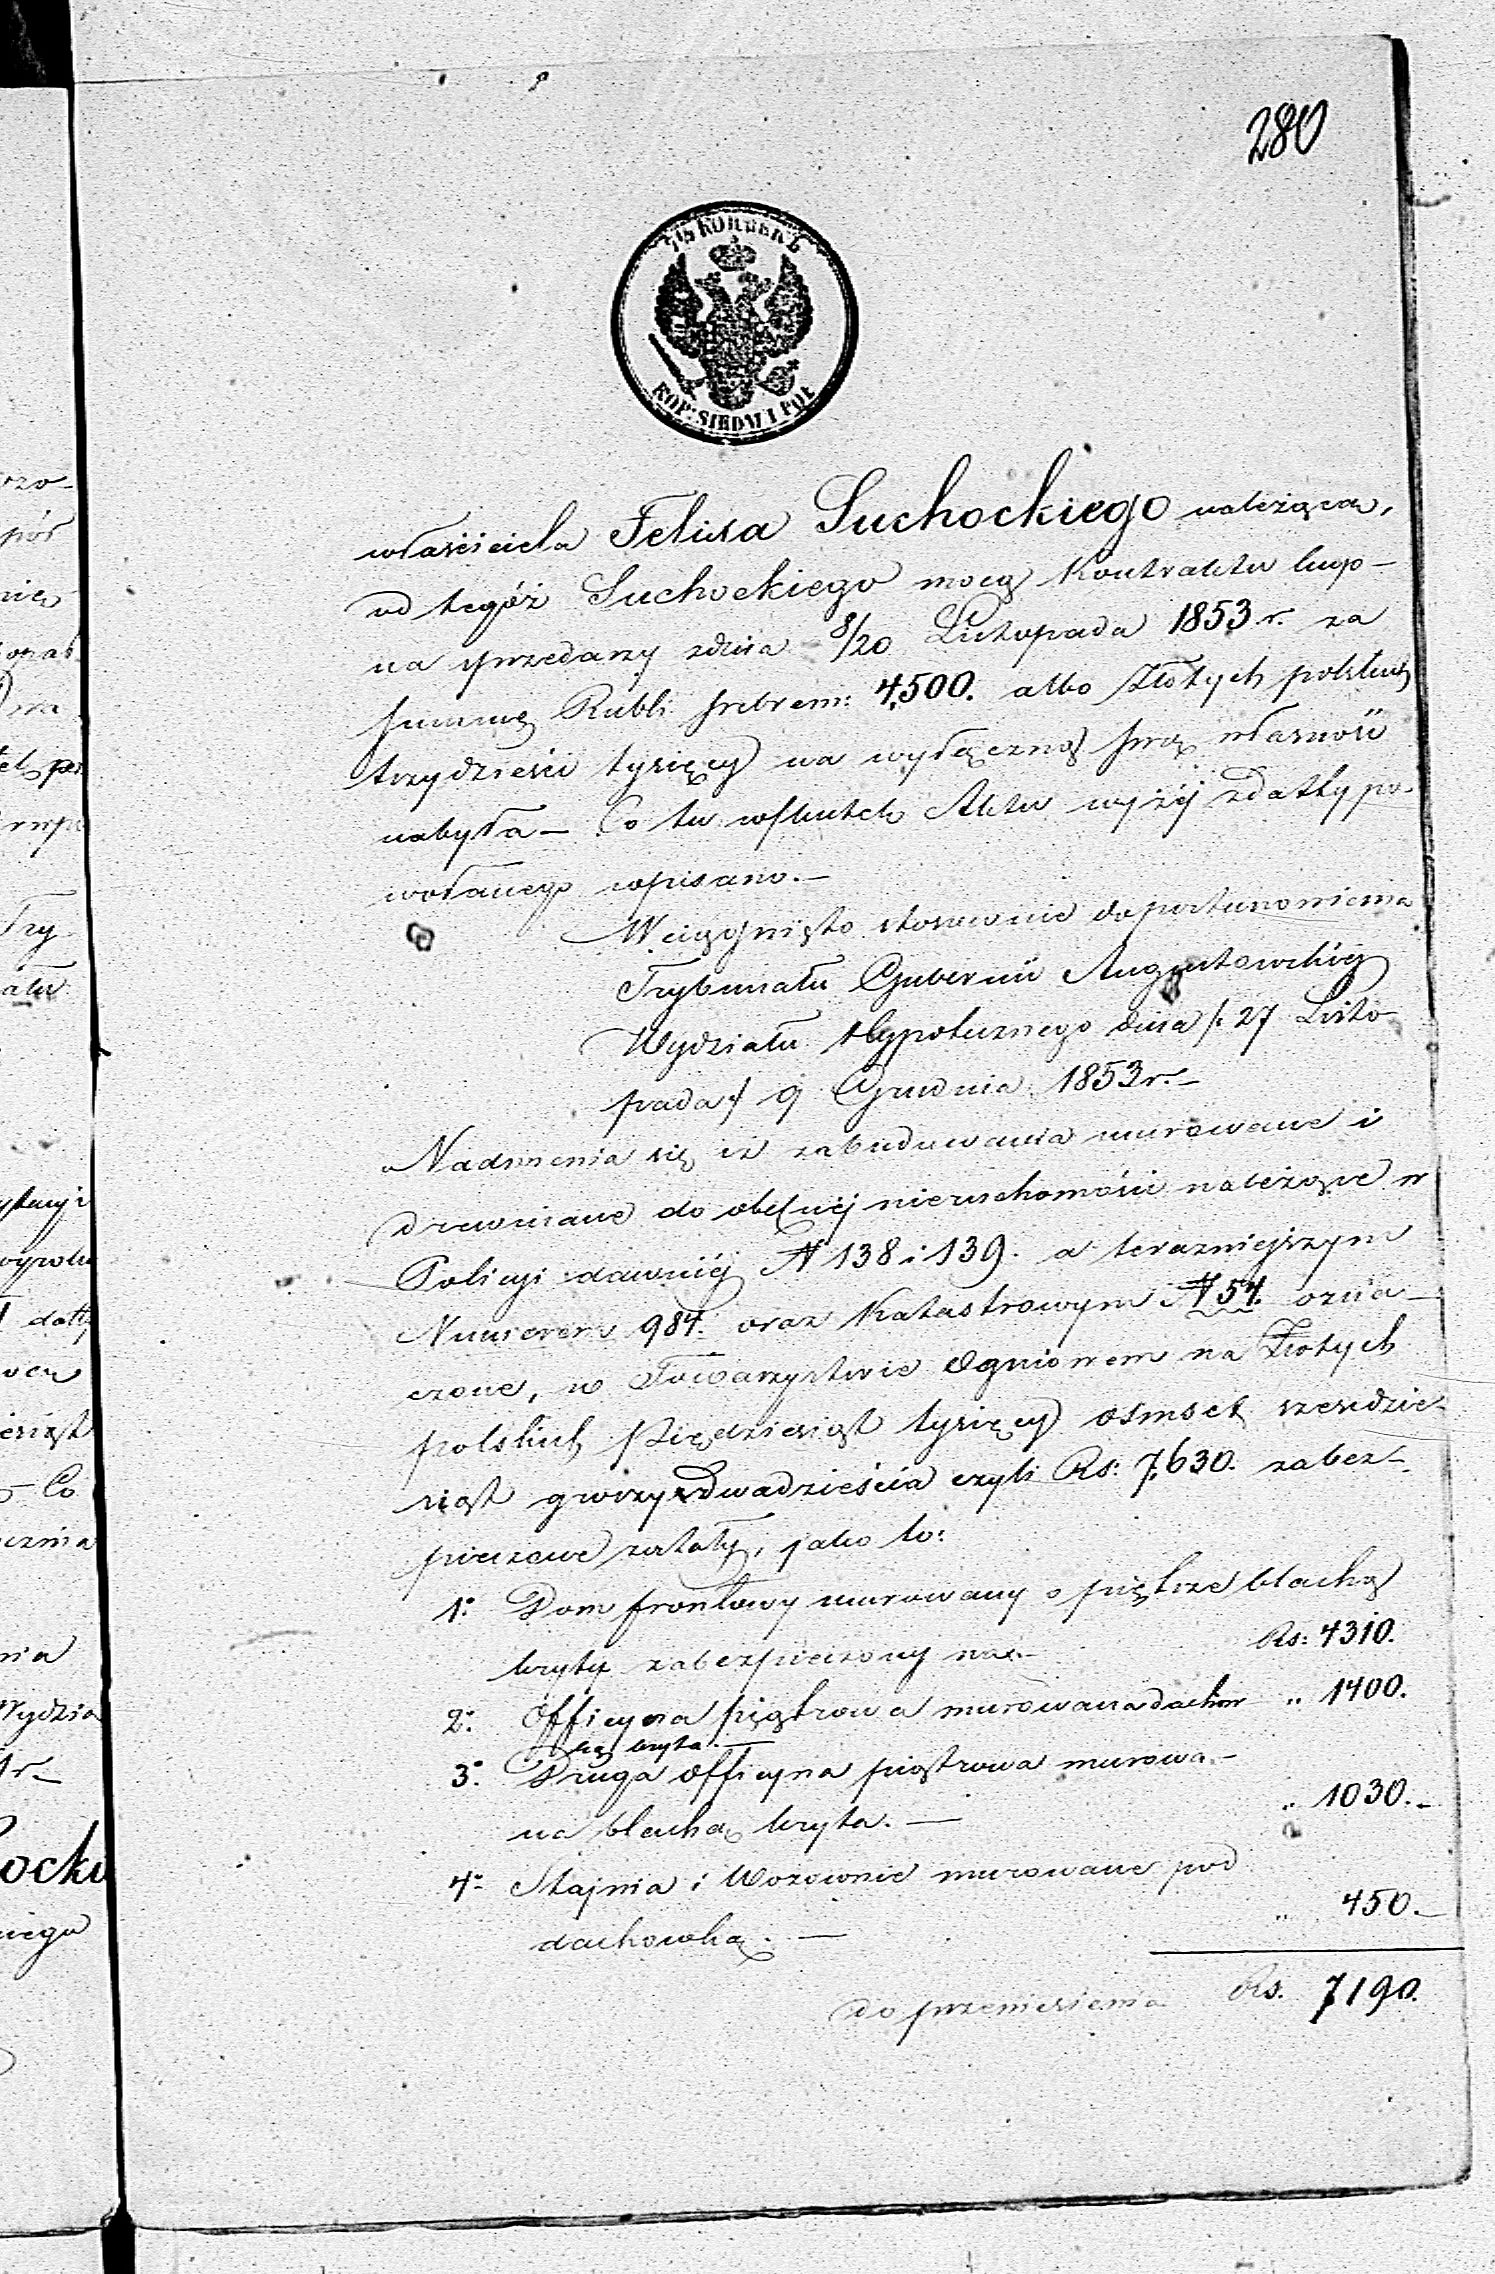 280
7½ КОПѢЕКЪ
KOP: SIEDM I PÓŁ
właściciela Felixa Suchockiego należąca,
od tegóż Suchockiego mocą Kontraktu kup-
na sprzedaży zdnia 8/20 Listopada 1853 r. za
summę Rubli srebrem: 4,500. albo Złotych polskich
trzydzieści tysięcy na wyłączną swą własność
nabyła – Co tu wskutek Aktu wyżéj zdatty po-
wołanego wpisano. –
Wciągnięto stosownie do postanowienia
Trybunału Gubernii Augustowskiéj
Wydziału Hypotecznego dnia /: 27 Listo-
pada :/ 9 Grudnia 1853 r. –
Nadmienia się iż zabudowania murowane i
drewniane do obecnéj nieruchomości należące w
Policyi dawniéj N 138 i 139. a terazniejszym
Numerem 984. oraz Katastrowym N 54. ozna-
czone, w Towarzystwie Ogniowem na Złotych
polskich piędziesiąt tysięcy ośmset szesdzie-
siąt groszy dwadzieścia czyli Rs: 7,630. zabez-
pieczone zostały, jako to:
1º Dom frontowy murowany o piętrze blachą
kryty zabezpieczony na. – Rs: 4310.
2º Officyna piętrowa murowana dachów „ 1400.
ką kryta. –
3º Druga officyna piętrowa murowa. –
na blachą kryta. – „ 1030. –
4º Stajnia i Wozownie murowane pod
dachowką. – „ 450. –
do przeniesienia Rs. 7190.